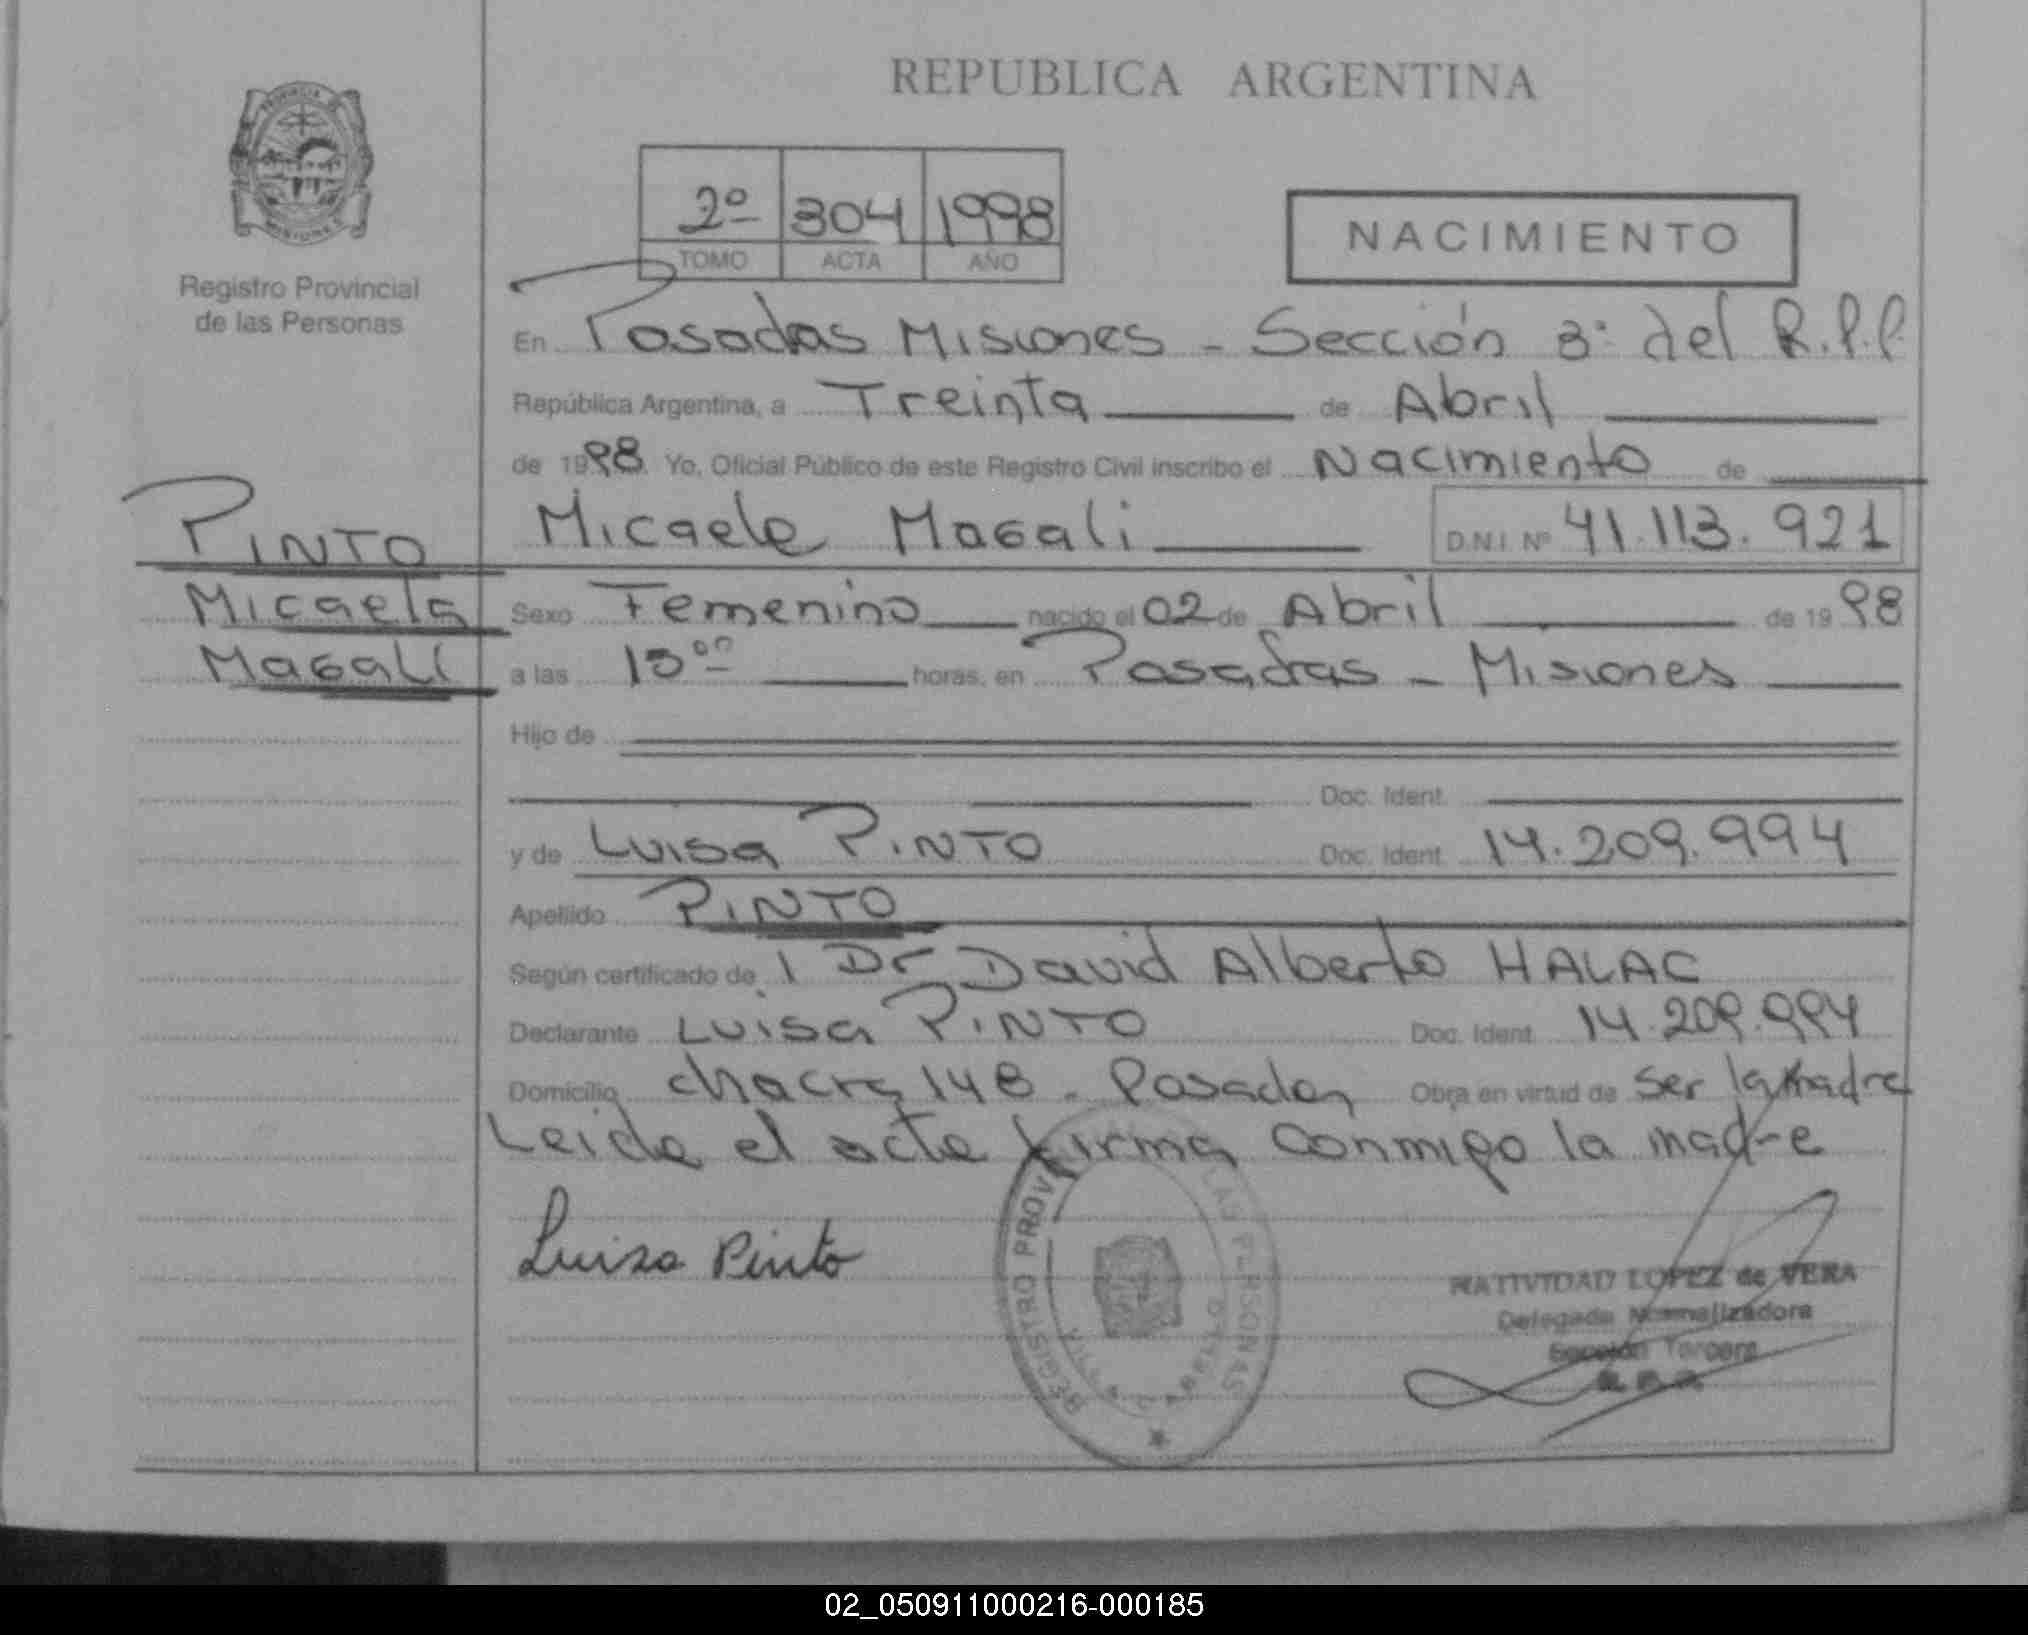 REPUBLICA ARGENTINA
PROVINCIA DE
MISIONES
Registro Provincial
de las Personas
2º 304 1998
TOMO ACTA AÑO
NACIMIENTO
En Posadas Misiones - Sección 3ª del R.P.P.
República Argentina, a Treinta de Abril
de 1998. Yo, Oficial Público de este Registro Civil inscribo el Nacimiento de
PINTO
Micaela
Magali
Micaela Magali D.N.I. Nº 41.113.921
Sexo Femenino nacido el 02 de Abril de 1998
a las 15⁰⁰ horas, en Posadas - Misiones
Hijo de
Doc. Ident.
y de Luisa PINTO Doc. Ident. 14.209.994
Apellido PINTO
Según certificado de Dr David Alberto HALAC
Declarante Luisa PINTO Doc. Ident. 14.209.994
Domicilio chacra 148 - Posadas Obra en virtud de ser la madre
Leida el acta firma conmigo la madre
Luisa Pinto
REGISTRO PROV LAS PERSONAS
NATIVIDAD LOPEZ de VERA
Delegada Normalizadora
Sección Tercera
02_050911000216-000185